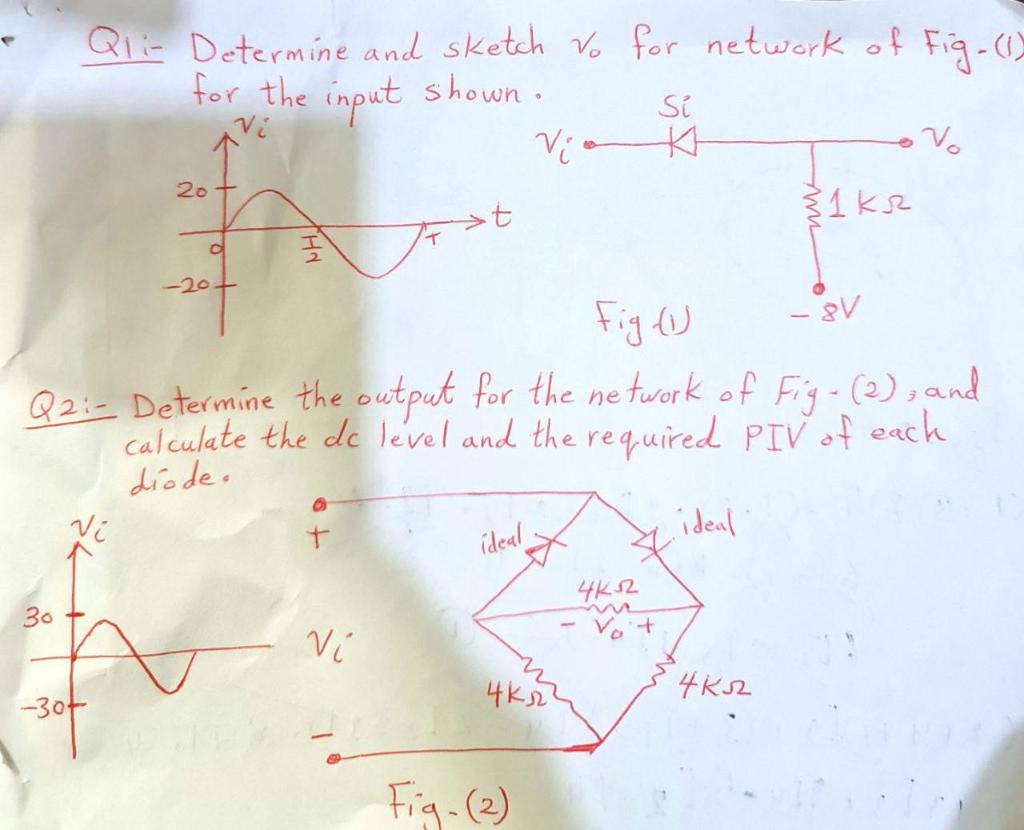 Q1:- Determine and sketch Vo for network of Fig-(1)
for the input shown.
Vi
20
0
T/2
T
t
-20
Si
Vi
Vo
1 KΩ
- 8V
Fig-(1)
Q2:- Determine the output for the network of Fig-(2), and
calculate the dc level and the required PIV of each
diode.
Vi
30
-30
+
Vi
-
ideal
ideal
4KΩ
- Vo +
4KΩ
4KΩ
Fig-(2)